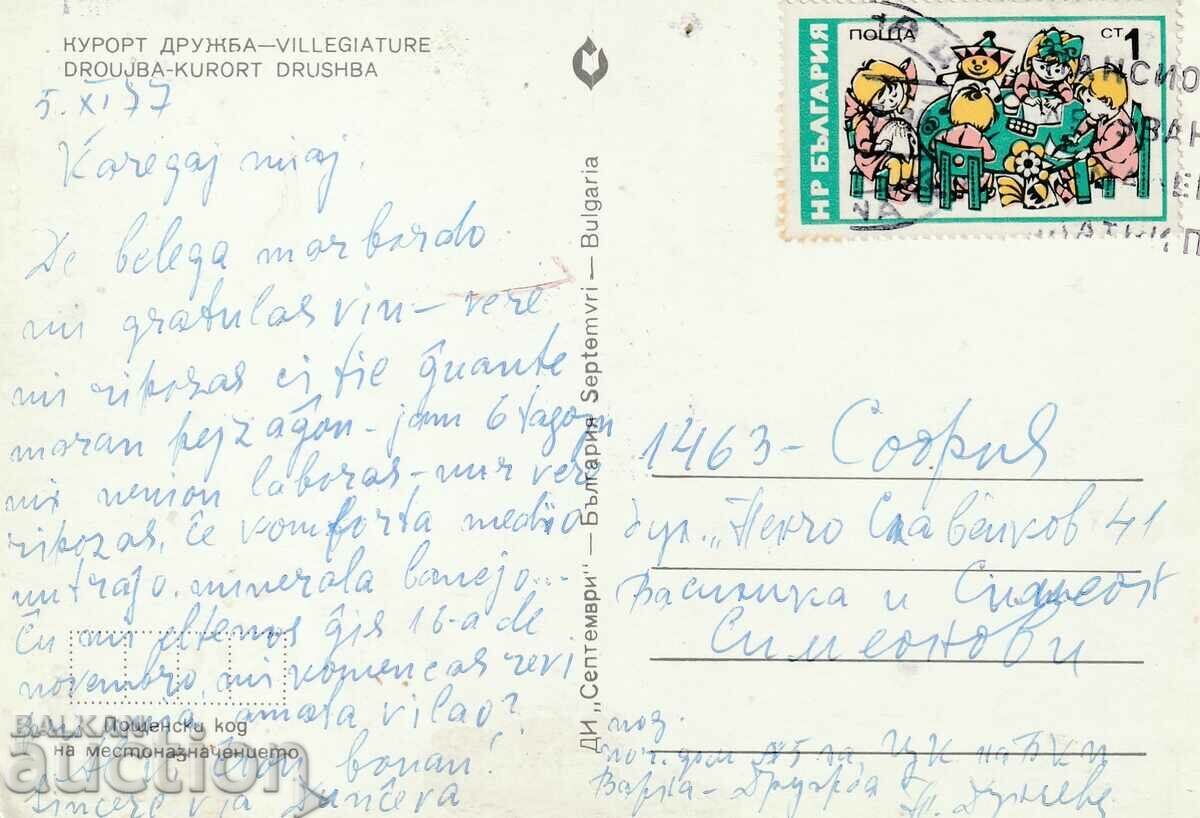 КУРОРТ ДРУЖБА—VILLEGIATURE
DROUJBA-KURORT DRUSHBA
5.XI 77
Karegaj miaj.
De belega marbordo
mi gratulas vin - vere
mi ripozas ĉi tie ĝuante
maran pejzaĝon - jam 6 tagojn
mi nenion laboras - nur vere
ripozas, ĉe komforta medio
mineralo banejo
Ĉu mi eltenos ĝis 16-a de
novembro, mi komencas revi
amata vilao?
bonan
Sincere via Dunĉeva
Пощенски код
на местоназначението
BALKAN
auction
ДИ „Септември" — България Septemvri — Bulgaria
НР БЪЛГАРИЯ
ПОЩА
СТ 1
1463 - София
бул. „Пенчо Славейков 41
Василка и Симеон
Симеонови
поч. дом №5 на ЦК на БКП
Варна - Дружба